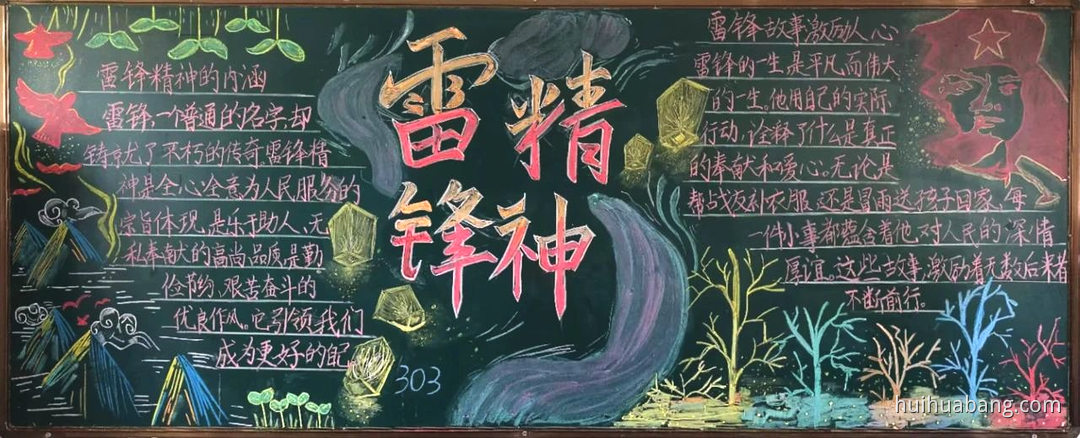 雷锋精神的内涵
雷锋、一个普通的名字,却
铸就了不朽的传奇.雷锋精
神是全心全意为人民服务的
宗旨体现,是乐于助人、无
私奉献的高尚品质是勤
俭节约、艰苦奋斗的
优良作风。它引领我们
成为更好的自己
雷锋
精神
303
雷锋故事激励人心
雷锋的一生是平凡而伟大
的一生。他用自己的实际
行动,诠释了什么是真正
的奉献和爱心。无论是
帮战友补衣服,还是冒雨送孩子回家,每
一件小事都蕴含着他对人民的深情
厚谊。这些故事,激励着无数后来者
不断前行。
huihuabang.com